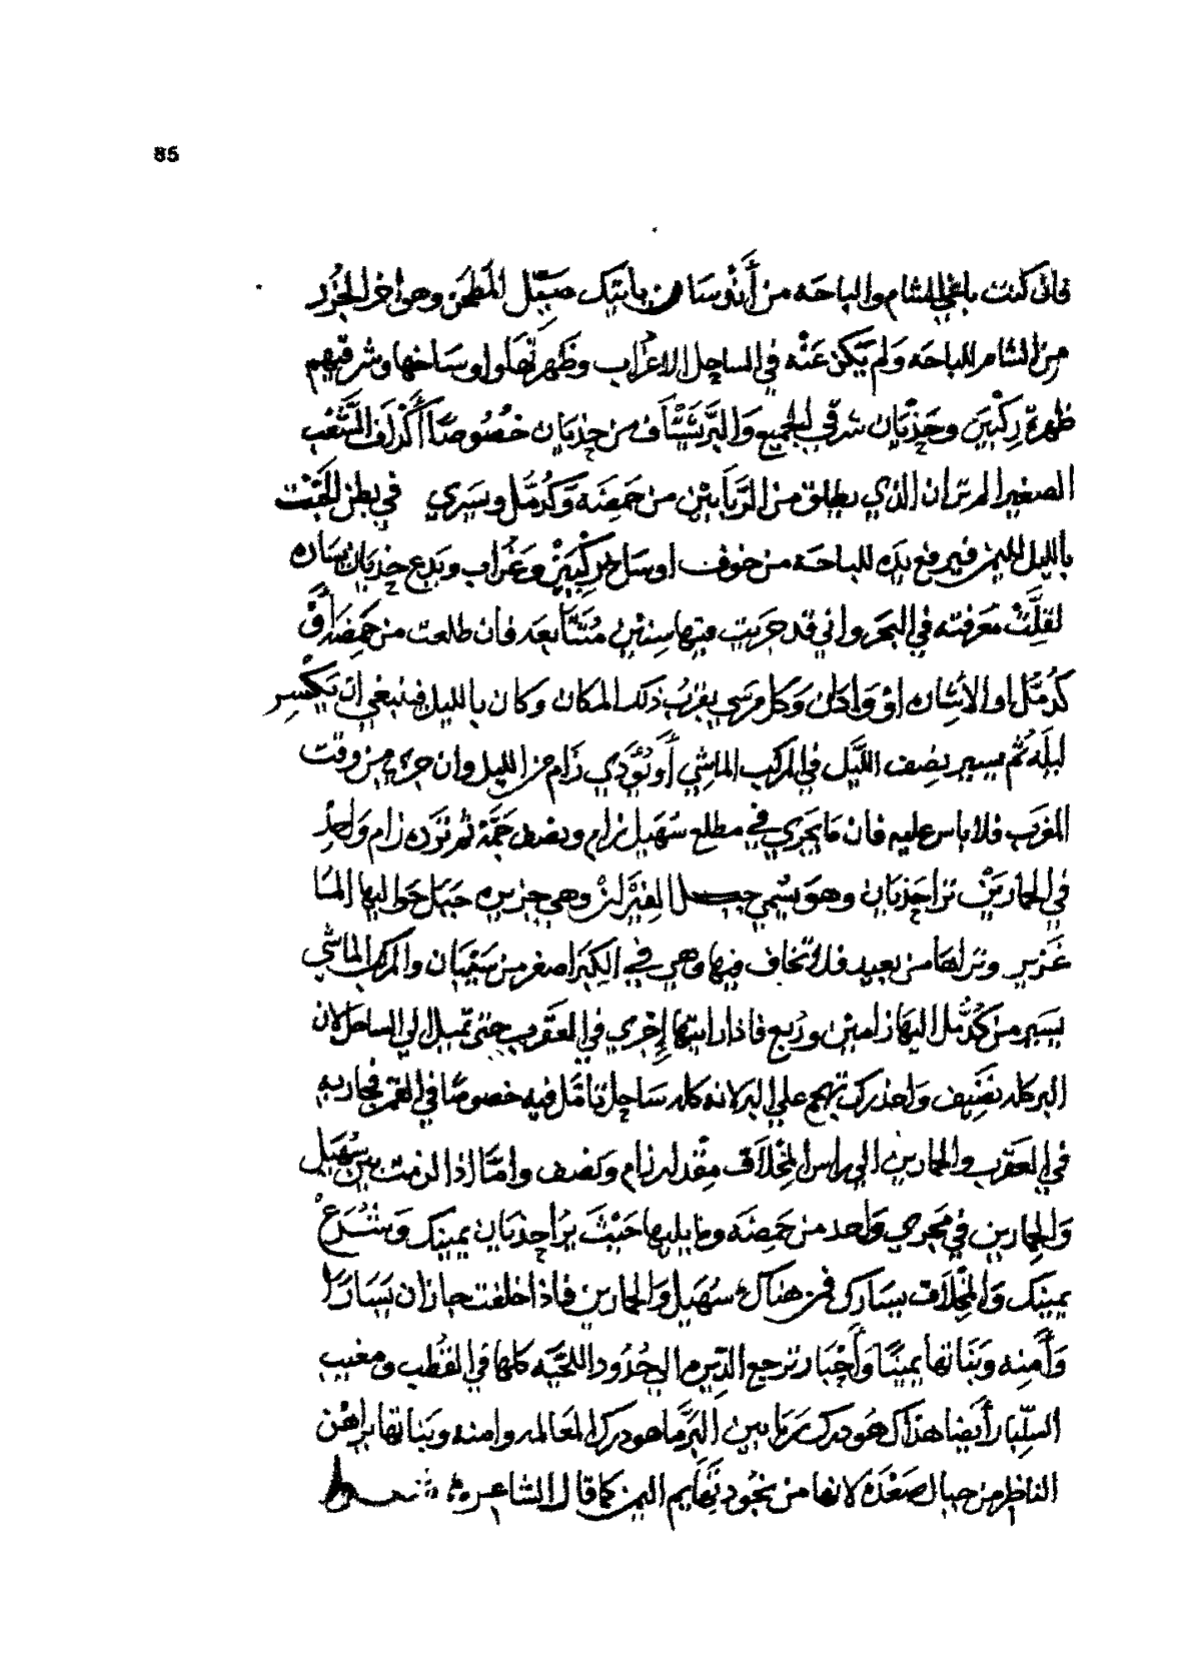 85
فان كنت باغي الشام والباحه من أندوسا من يأتيك صبيّل المَطْحَن وهو اخر الجُزُر
من الشام للباحه وَلم يكن عَنْه في الساحل الا غراب وظهرتها واوساخها وشرقيهم
ظهرة رِكْبَين وحَذْيَان شرقي الجميع وَالبرّ يَتَشَاف من حذيان خصُوصًا أكْدَاف الشَّعْب
الصغير المرتران الذي يطلق من الرَّبَايِن من حَمِضَه وَكدُمُّل ويسري في بطن الخَبْت
بالليل لليمن فيرفع يَده للباحَة من خوف اوساخ ركْبَين وغراب ويدع حذيان يساره
لقلَّتْ مَعرفته في البحر واني قد جربت فيها سنتين مُتَتَابعَه فان طلعت من حَمِضَه أَوْ
كدُمُّل او الاشاره اوْ وَادَان وَكل مرسي بقرب ذلك المكان وكان بالليل فينبغي ان يكسر
ليله ثم يسير نصف اللَّيل في المركب الماشي أو يُؤَدي زام من الليل وان جري من وقت
المغرب فلا باس عليه فان مَا يَجري في مطلع سُهَيل زام ونصف حَمَّة ثم تَرده زام وَاحد
في الحمارين ترا حَذيان وهوَ يسُمي جبـــل وهي جزيره جبَل حَواليها المَا
غَزير وتراهَا من بعيد فلا تخاف فيها وهي في الكِبَر اصغر من سَيْبَان والمركب الماشي
يسَير من كدُمُّل اليهَا زامين ورُبع فاذا رايتها إجْري في العَقرب حتى تميل الي الساحل لان
البر كله نَضِيف وَاحذرك تهجم علي البر لانه كله سَاحل تَأمّل فيه خصوصًا في القمر فجاريه
في العَقرب والحمارين الي راس المِخْلَاف مِقْدار زام ونصف وامَّا اذا لزمت بين سُهَيل
وَالحمارين في مَجري وَاحد من حَمِضَه وما يليها حَيْثَ يَرَا حذيَان يمينك وَشُرَعْ
يمينك وَالمِخْلَاف يسَارك فمن هناك سُهَيل وَالحمارين فاذا اخلفت جازان يسَارَا
وَآمِنه وبَنَاتها يمينًا وَأَخْبَار ترجع الدِّيرم الي حُدُود اللحَيَّه كلها في القُطب ومغيب
السِّلِّبار أَيضا هذاك هُو درك رَمَا بين البَرّ ما هو درك المعَالمه وامنه وبناتها يراهُنّ
الناظر من جبال صَعْدَه لانها من نجُود تَهَايم اليمن كما قال الشاعر شعـــر